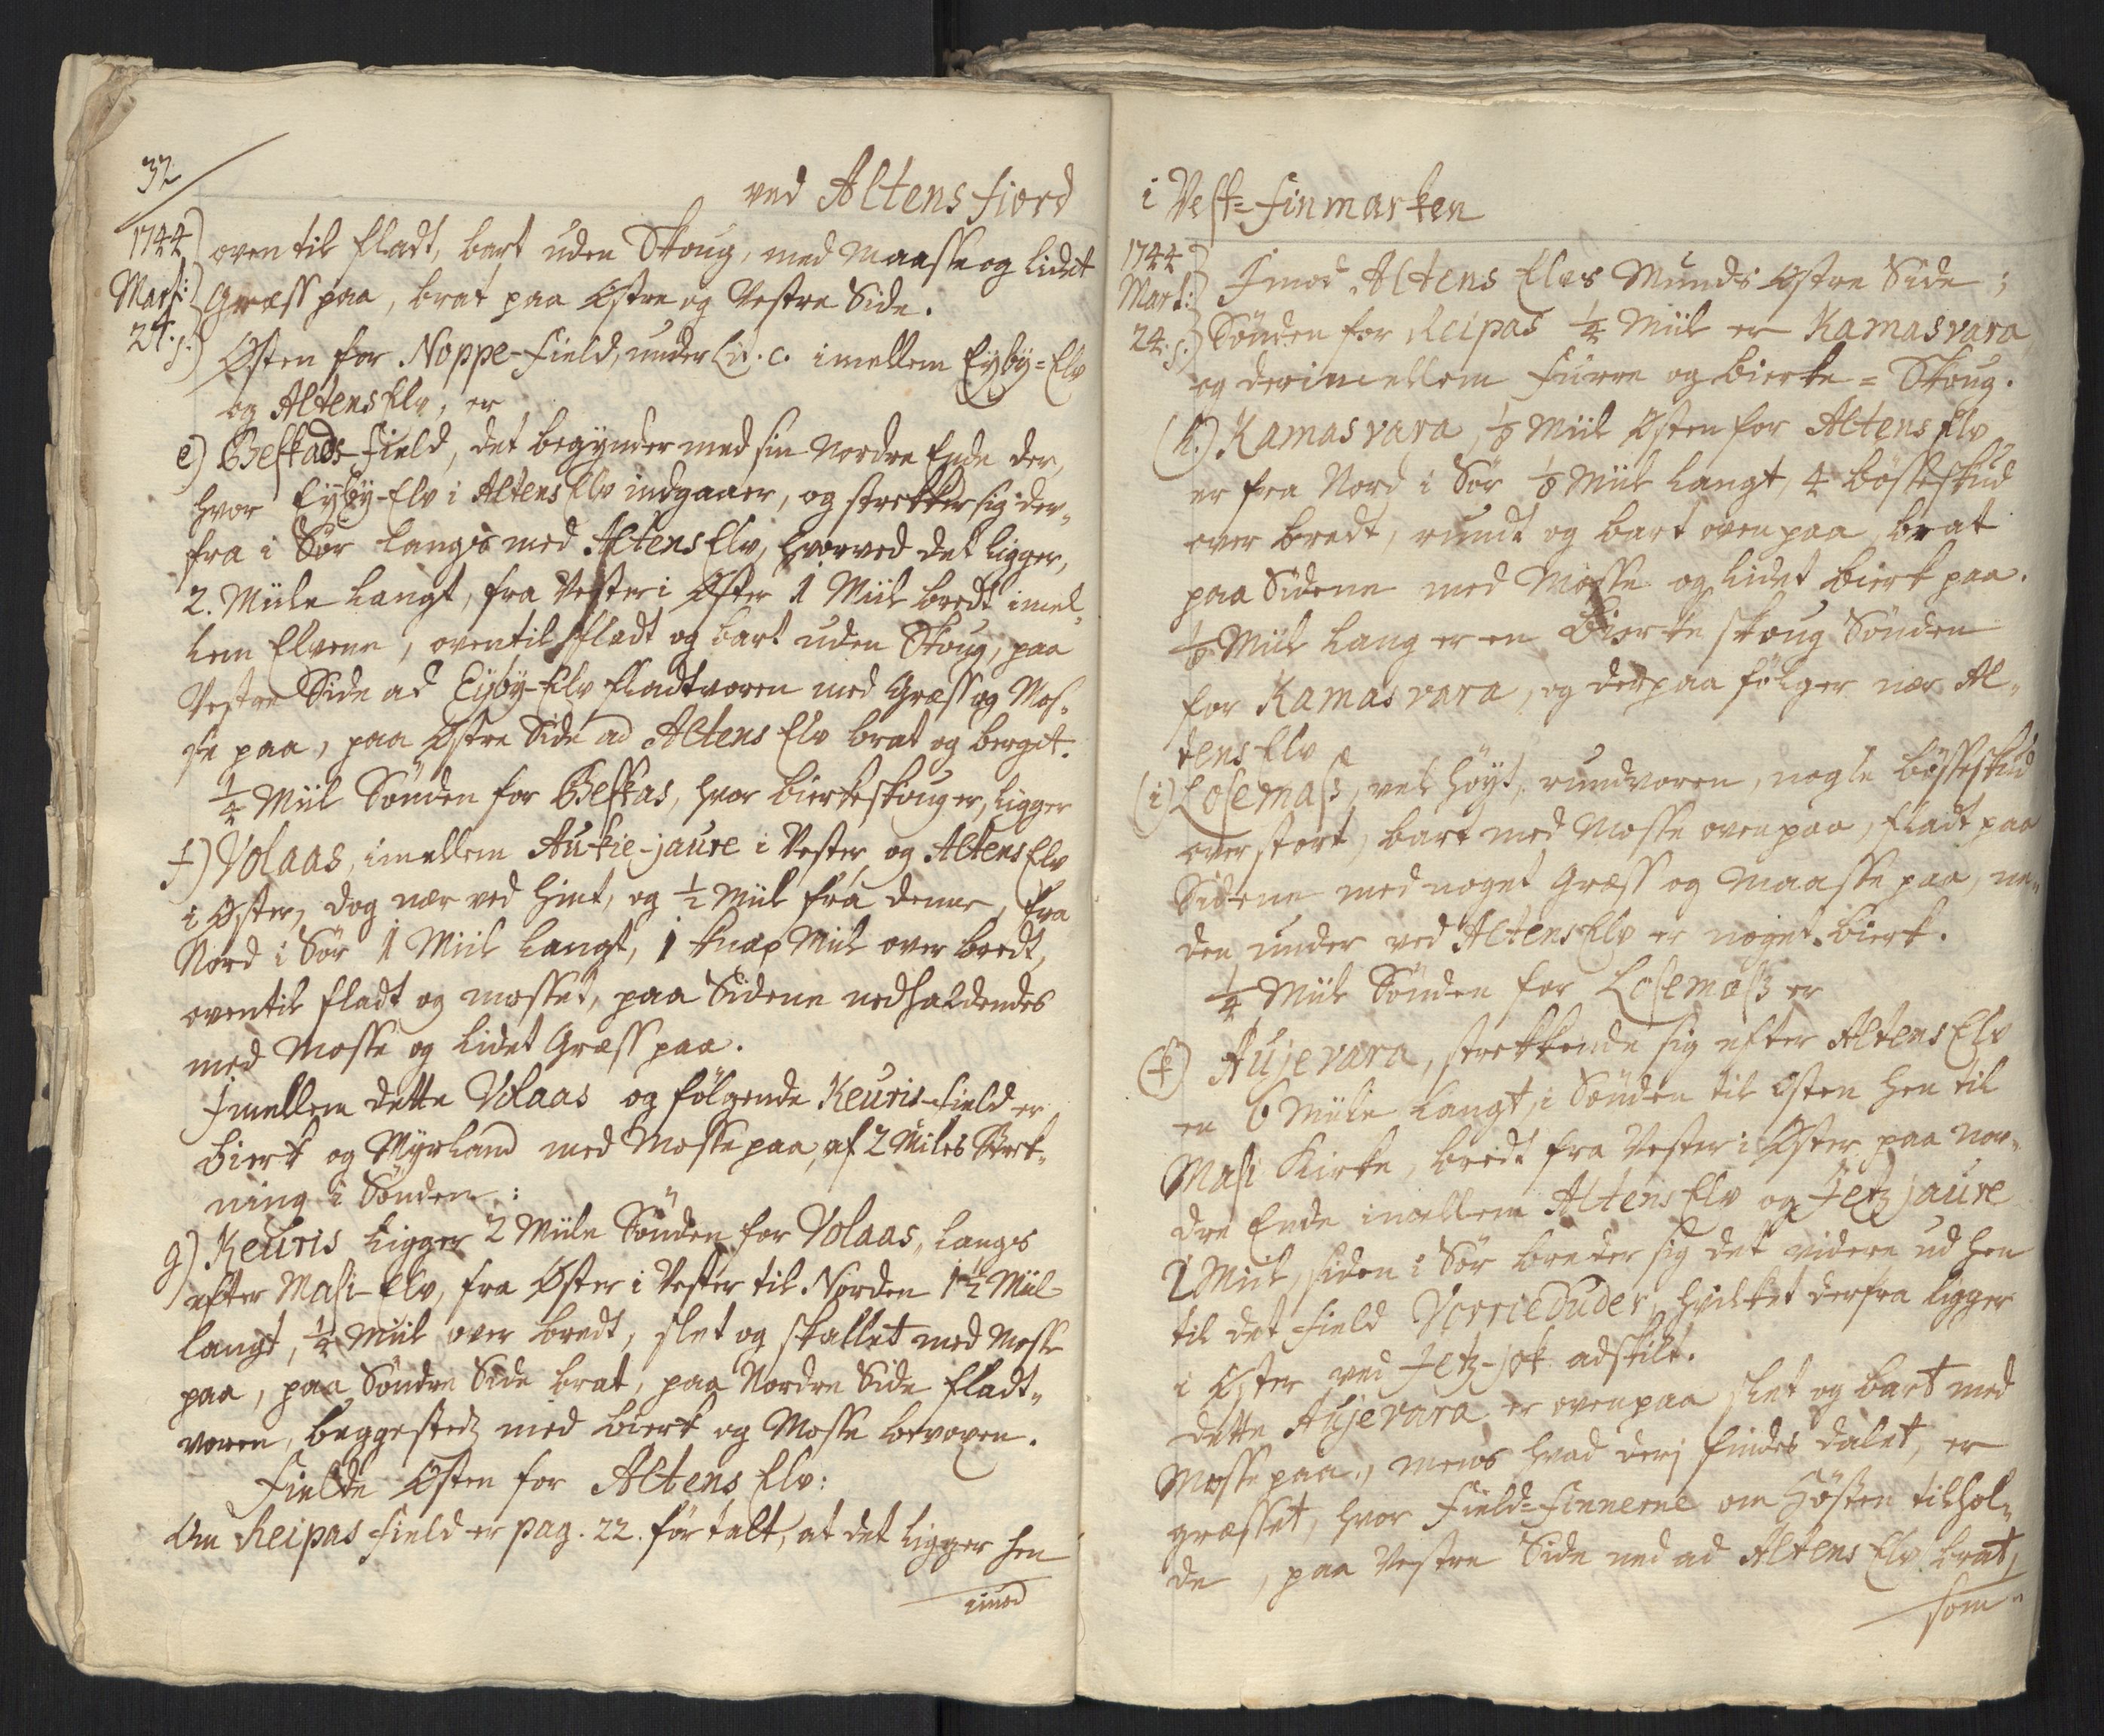 32
ved Altens fiord
1744
Marti:
24. s.
oven til fladt, bart uden Skoug, med Maasse og lidet
Græss paa, brat paa Østre og Vestre Side.
Østen for Noppe-Field, under Lit. c. imellem Eyby=Elv
og Altens Elv, er
e) Beskads-Field, det begynder med sin Nordre Ende der,
hvor Eyby-Elv i Altens Elv indgaaer, og strekker sig der„
fra i Sør langs med Altens Elv, hvorved det ligger,
2. Miile langt, fra Vester i Øster 1 Miil bredt imel„
lem Elvene, oventil fladt og bart uden Skoug, paa
Vestre Side ad Eyby-Elv fladtvoren med Græss og Mos„
se paa, paa Østre Side ad Altens Elv brat og berget.
1/4 Miil Sønden for Beskas, hvor bierkeskoug er, ligger
f) Volaas, imellem Aukie-jaure i Vester, og Altens Elv
i Øster, dog nær ved hint, og 1/2 Miil fra denne, fra
Nord i Sør 1 Miil langt, 1 knap Miil over bredt,
oventil fladt og mosset, paa Sidene nedhaldendes
med Mosse og lidet Græss paa.
Imellem dette Volaas og følgende Keuris-Field er
bierk og Myrland med Mosse paa, af 2 Miiles Strek„
ning i Sønden:
g) Keuris ligger 2 Miile Sønden for Volaas, langs
efter Masi-Elv, fra Øster i Vester til Norden 1 1/2 Miil
langt, 1/4 Miil over bredt, slet og skallet med Mosse
paa, paa Søndre Side brat, paa Nordre Side fladt„
voren, beggestedz med bierk og Mosse bevoxen.
Fielde Østen for Altens Elv:
Om Reipas Field er pag. 22. før talt, at det ligger hen
imod
i Vest=Finmarken
1744
Mart:
24. s.
Imod Altens Elvs Munds Østre Side;
Sønden for Reipas 1/4 Miil er Kamasvara
og derimellem Furre og bierke=Skoug.
(h.) Kamasvara, 1/8 Miil Østen for Altens Elv
er fra Nord i Sør 1/8 Miil langt, 4 bøsseskud
over bredt, rundt og bart ovenpaa, brat
paa Sidene med Mosse og lidet bierk paa.
1/8 Miil lang er en Bierke skoug Sønden
for Kamasvara, og derpaa følger nær Al„
tens Elv
(i) Losemass, vel høyt, rundvoren, nogle bøsseskud
over stort, bart med Mosse ovenpaa, fladt paa
Sidene med noget Græss og Maasse paa, ne„
den under ved Altens Elv er noget bierk.
1/4 Miil Sønden for Losemass er
(k) Aujevara, strekkende sig efter Altens Elv
en 6 Miile langt, i Sønden til Østen hen til
Masi Kirke, bredt fra Vester i Øster paa Nor„
dre Ende imellem Altens Elv og Jetzjaure
1 Miil, siden i Sør breder sig det videre ud hen
til det Field Vorrieduder, hvilket derfra ligger
i Øster ved Jetz-jok adskilt.
dette Aujevara er ovenpaa slet og bart med
Mosse paa, mens hvad deri findes dalet, er
græsset, hvor Field=Finnerne om Høsten tilhol„
de, paa Vestre Side ned ad Altens Elv brat,
som„